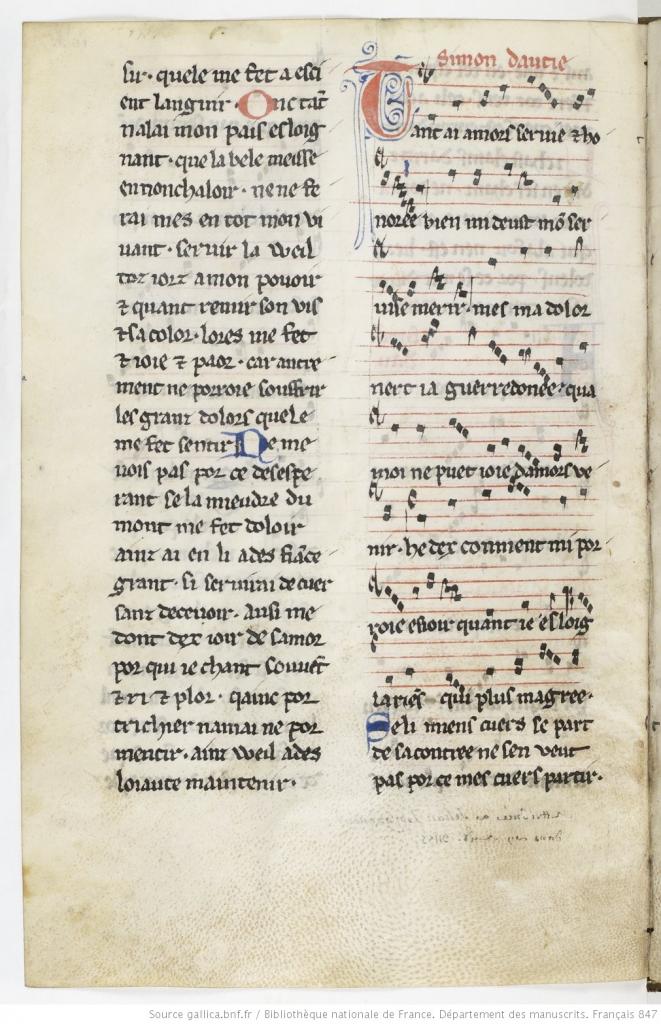 sir · quele me fet a esci
ent languir · Onc tāt
nalai mon pais esloig
nant · que la bele meusse
en nonchaloir · ne ne fe
rai mes en tot mon vi
uant · seruir la weil
toz iorz a mon pouoir
⁊ quant remir son vis
⁊ sa color · lores me fet
⁊ ioie ⁊ paor · car autre
ment ne porroie souffrir
les granz dolors quele
me fet sentir Ne me
uois pas por ce desespe
rant se la mieudre du
mont me fet doloir
ainz ai en li ades fiāce
grant · si seruirai de cuer
sanz deceuoir · ausi me
dont dex ioir de samor
por qui ie chant souuēt
⁊ ri ⁊ plor · qainc por
trichier namai ne por
mentir · ainz weil ades
loiaute maintenir ·
Simon dautie
Tant ai amors seruie ⁊ ho
noree bien mi deust mō ser
uise merir · mes ma dolor
nert ia guerredonee · qua
moi ne puet ioie damors ve
nir · he dex comment mi por
roie esioir quant ie esloig
la riēs qui plus magree ·
Se li miens cuers se part
de sa contree ne sen veut
pas por ce mes cuers partir ·
Source gallica.bnf.fr / Bibliothèque nationale de France. Département des manuscrits. Français 847